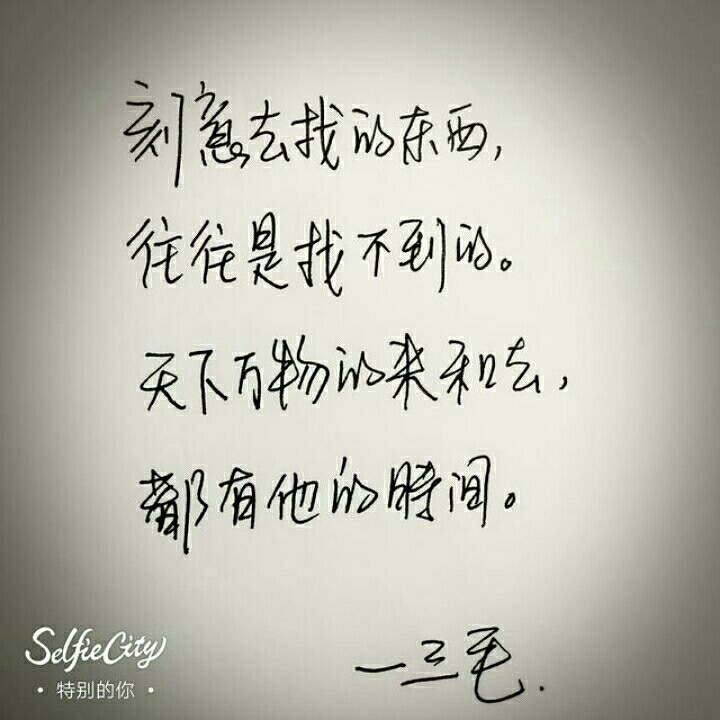 刻意去找的东西,
往往是找不到的。
天下万物的来和去,
都有他的時间。
一三毛.
SelfieCity
· 特别的你 ·